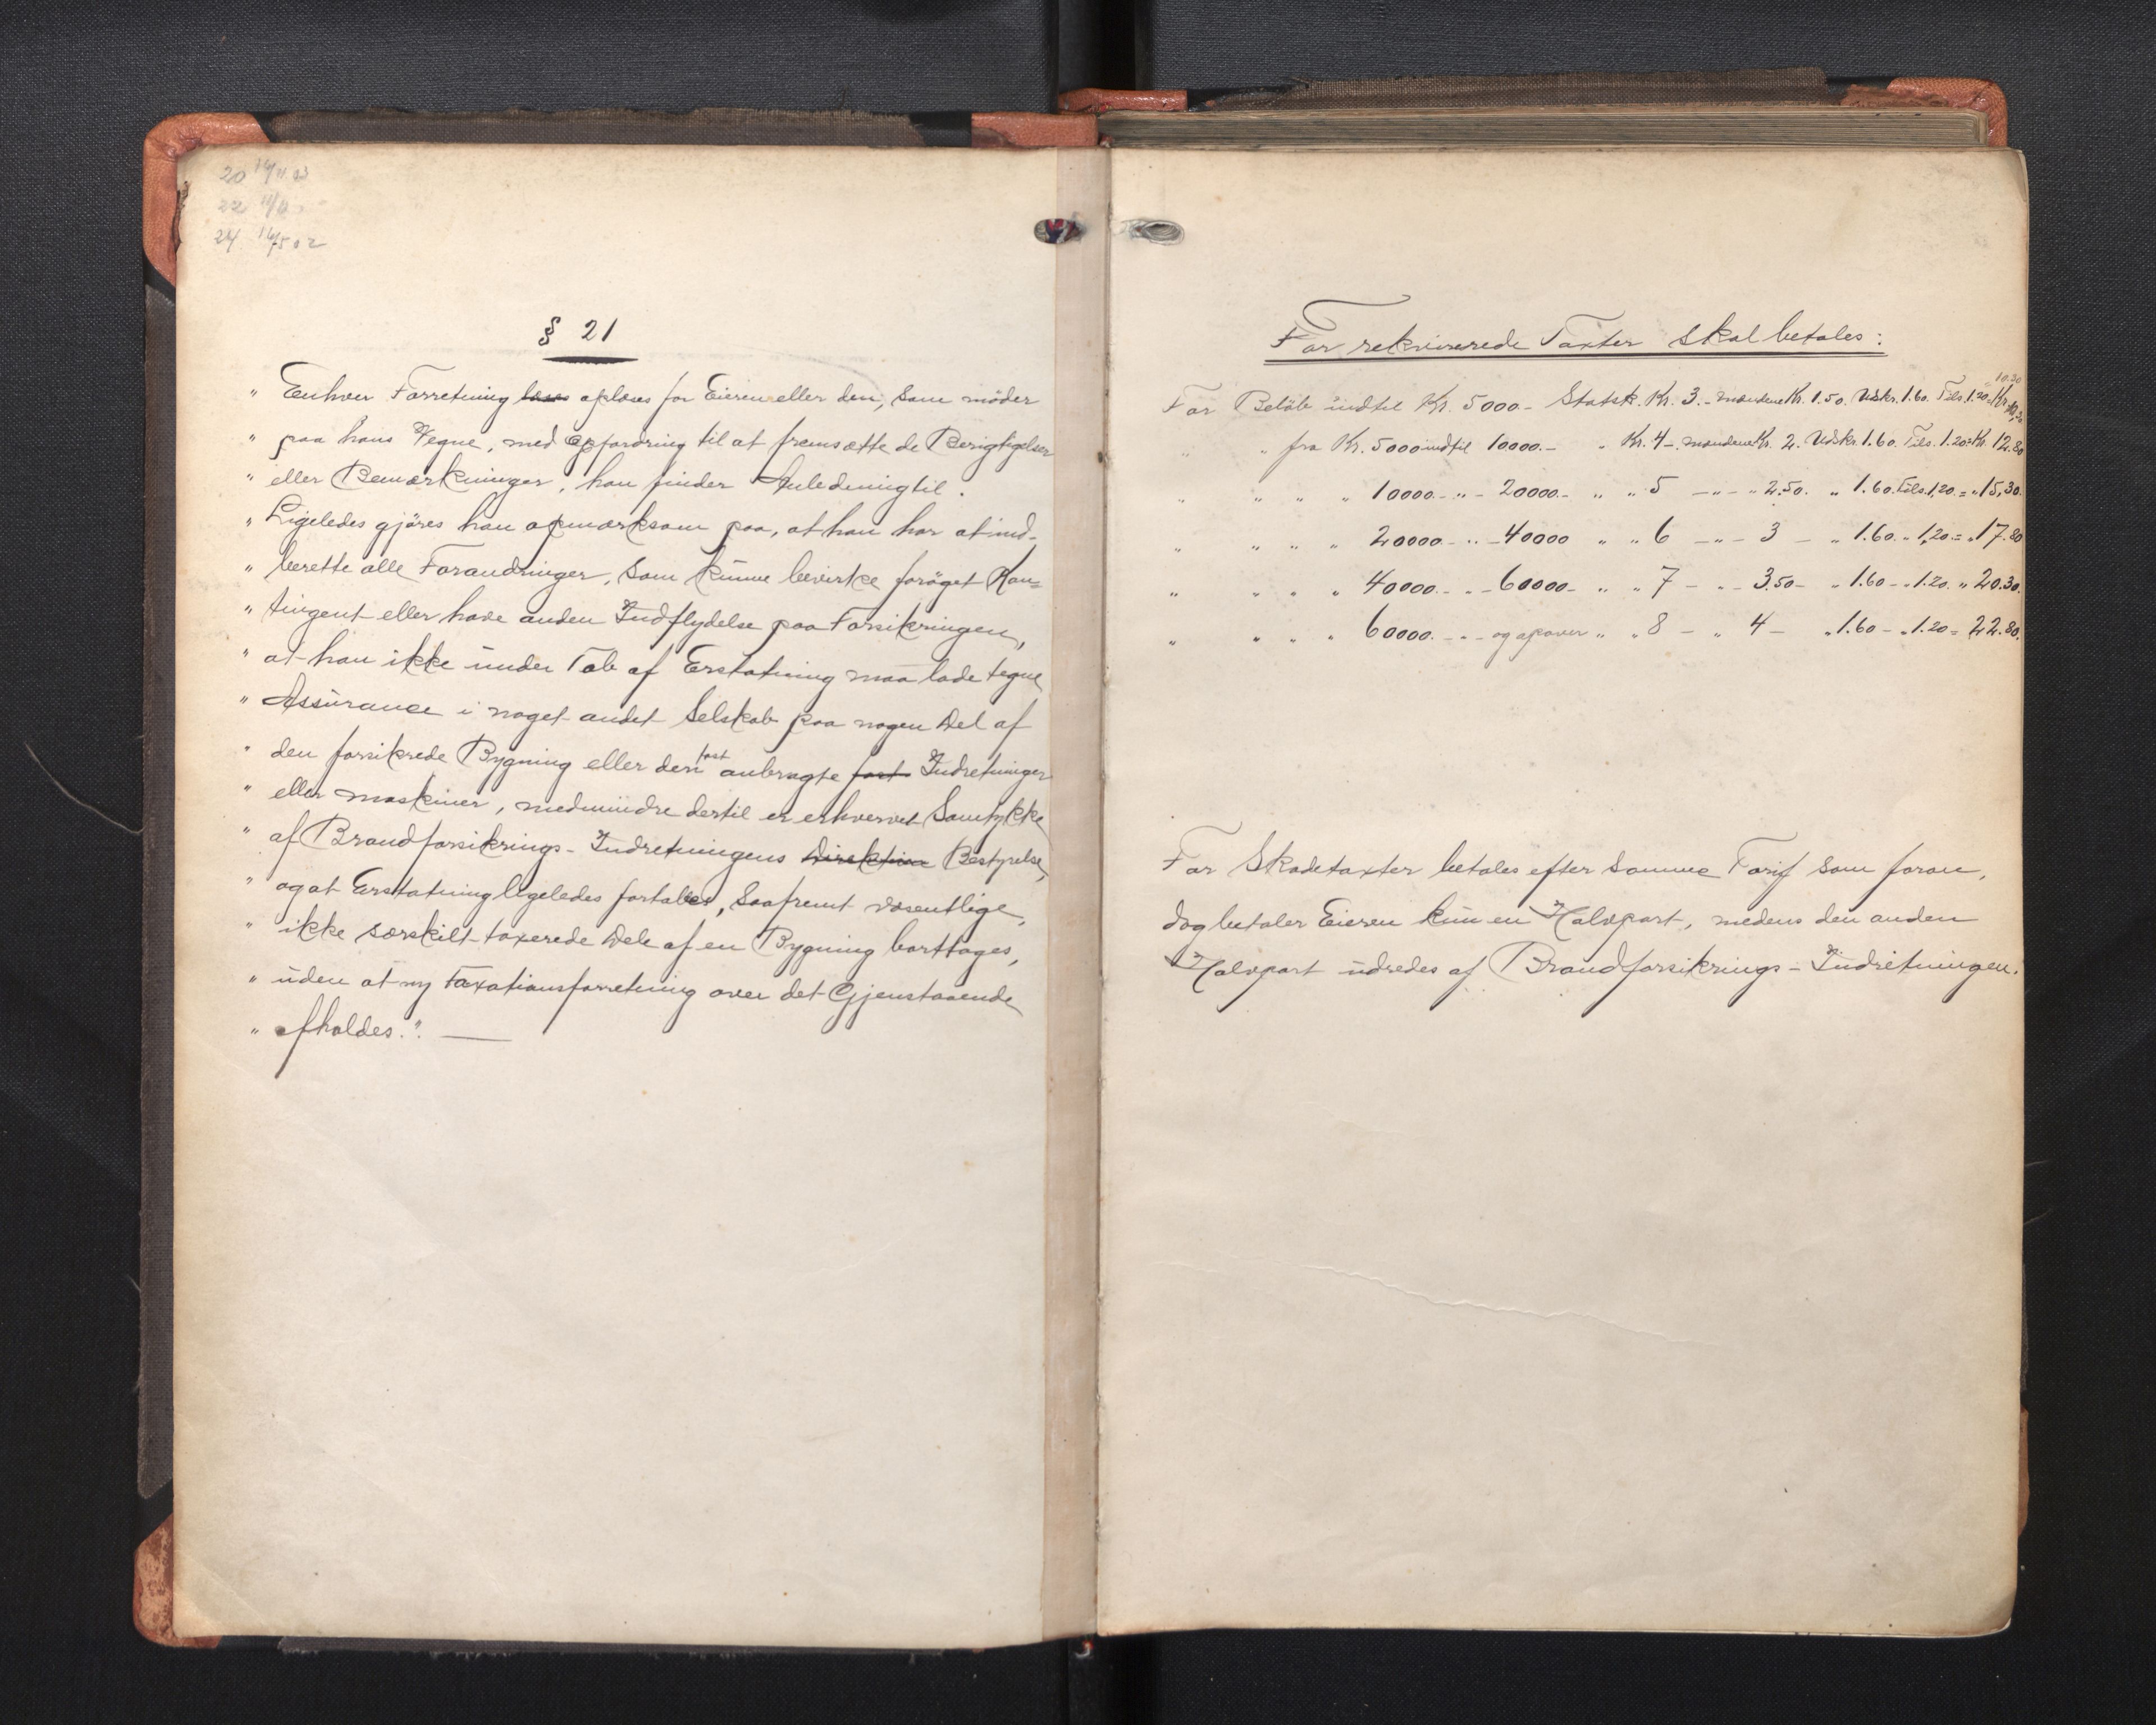 20 14/11 03
22 11/8
24 16/5 02
§ 21
" Enhver Forretning læses oplæses for Eieren eller den, som möder
" paa hans Vegne, med Opfordring til at fremsætte de Berigtigelser
" eller Bemærkninger, han finder Anledning til.
" Ligeledes gjöres han opmærksom paa, at han har at ind-
" berette alle Forandringer, som kunne bevirke foröget Kon=
" tingent eller have anden Indflydelse paa Forsikringen,
" at han ikke under Tab af Erstatning maa lade tegne
" Assurance i noget andet Selskab paa nogen Del af
" den forsikrede Bygning eller deri fast anbragte fast Indretninger
" eller maskiner, medmindre dertil er erhvervet Samtykke
" af Brandforsikrings-Indretningens Direktion Bestyrelse,
" og at Erstatning ligeledes fortabes, saafremt væsentlige,
" ikke særskilt taxerede Dele af en Bygning borttages,
" uden at ny Taxationsforretning over det Gjenstaaende
" afholdes.". —
For rekvirerede Taxter skal betales:
For Belöb indtil Kr. 5000.- Statsk. Kr. 3.- mændene Kr. 1.50. Udskr. 1.60. Tils. 1.20 = Kr. 10.30
" " fra Kr. 5000 indtil 10000.- " Kr. 4 -. mændene Kr. 2. Udskr. 1.60. Tils. 1.20 = Kr. 12.80
" " " " 10000.- " - 20000.- " " 5 - " - " 2.50. " 1.60. Tils. 1,20. = " 15,30.
" " " " 20000.- " - 40000 " " 6 - " - 3 - " 1.60. " 1,20. = " 17.80
" " " " 40000.- " - 60000.- " " 7 - " - 3.50 - " 1.60 - " 1.20. " 20.30.
" " " " 60000.- " - og opover " " 8 - " 4 - " 1.60 - " 1.20 = 22.80.
For Skadetaxter betales efter samme Tarif som foran,
dog betaler Eieren kun en Halvpart, medens den anden
Halvpart udredes af Brandforsikrings-Indretningen.